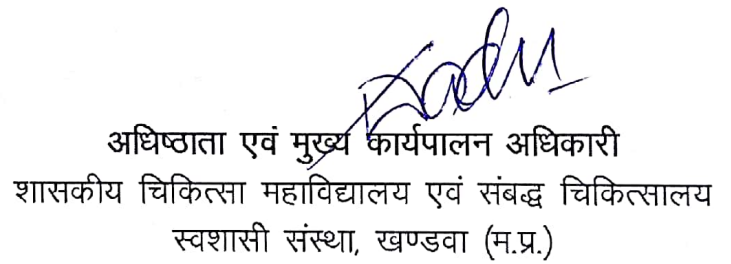 अधिष्ठाता एवं मुख्य कार्यपालन अधिकारी
शासकीय चिकित्सा महाविद्यालय एवं संबद्ध चिकित्सालय
स्वशासी संस्था, खण्डवा (म.प्र.)